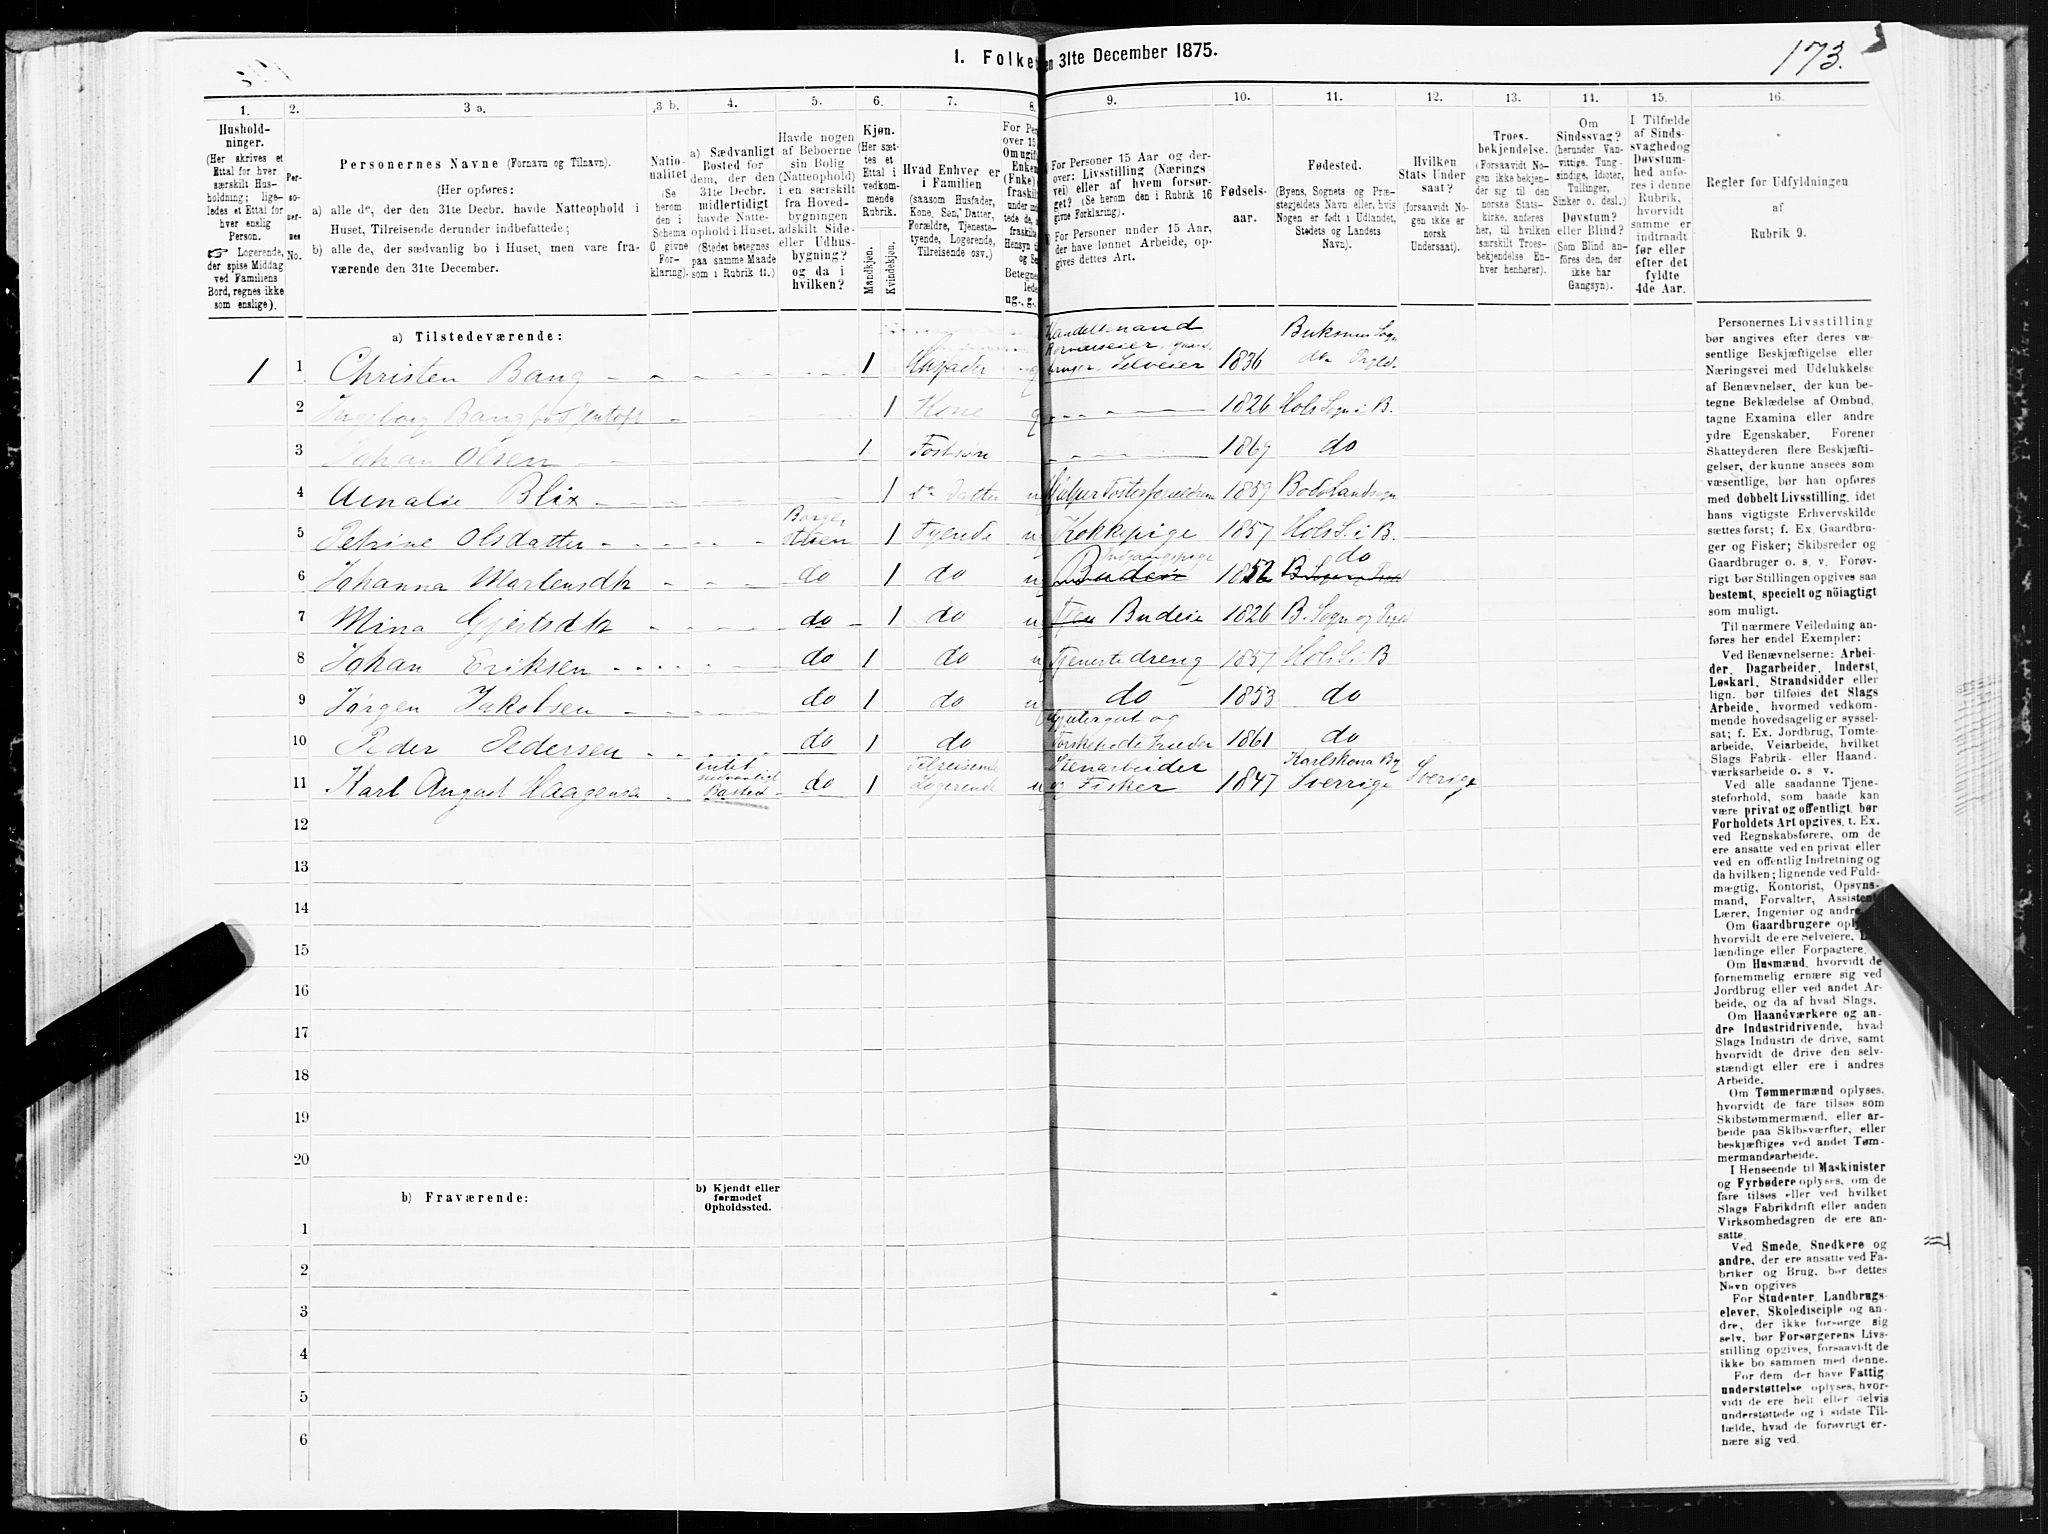 173.
I. Folke en 31te December 1875.
1. 2. 3 a. 3 b. 4. 5. 6. 7. 8. 9. 10. 11. 12. 13. 14. 15. 16.
Hushold-
ninger.
(Her skrives et
Ettal for hver
særskilt Hus-
holdning; lige-
ledes et Ettal for
hver enslig
Person.
☞ Logerende,
der spise Middag
ved Familiens
Bord, regnes ikke
som enslige).
Per-
so-
ner-
nes
No.
Personernes Navne (Fornavn og Tilnavn).
(Her opføres:
a) alle de, der den 31te Decbr. havde Natteophold i
Huset, Tilreisende derunder indbefattede;
b) alle de, der sædvanlig bo i Huset, men vare fra-
værende den 31te December.
Natio-
nalitet
(Se
herom
den i
Schema
0 givne
For-
klaring).
a) Sædvanligt
Bosted for
dem, der den
31te Decbr.
midlertidigt
havde Natte-
ophold i Huset.
(Stedet betegnes
paa samme Maade
som i Rubrik 11.)
Havde nogen
af Beboerne
sin Bolig
(Natteophold)
i en særskilt
fra Hoved-
bygningen
adskilt Side-
eller Udhus-
bygning?
og da i
hvilken?
Kjøn.
(Her sæt-
tes et
Ettal i
vedkom-
mende
Rubrik.
Mandkjøn.
Kvindekjøn.
Hvad Enhver er
i Familien
(saasom Husfader,
Kone, Søn, Datter,
Forældre, Tjeneste-
tyende, Logerende,
Tilreisende osv.)
For Per
over 15
Om ugift
Enken
(Fnke)
fraskilt
under in
tede de,
fraskille
Hensyn
og Se
Betegne
lede
ug., g.,
For Personer 15 Aar og der-
over: Livsstilling (Nærings
vei) eller af hvem forsør-
get? (Se herom den i Rubrik 16
givne Forklaring).
For Personer under 15 Aar,
der have lønnet Arbeide, op-
gives dettes Art.
Fødsels-
aar.
Fødested.
(Byens, Sognets og Præ-
stegjeldets Navn eller, hvis
Nogen er født i Udlandet,
Stedets og Landets
Navn).
Hvilken
Stats Under
saat?
(forsaavidt No-
gen ikke er
norsk
Undersaat).
Troes-
bekjendelse.
(Forsaavidt No-
gen ikke bekjen-
der sig til den
norske Stats-
kirke, anføres
her, til hvilken
særskilt Troes-
bekjendelse En-
hver henhører).
Om
Sindssvag?
(herunder Van-
vittige, Tung-
sindige, Idioter,
Tullinger,
Sinker o. desl.)
Døvstum?
eller Blind?
(Som Blind an-
føres den, der
ikke har
Gangsyn).
I Tilfælde
af Sinds-
svaghed og
Døvstum-
hed anfø-
res i denne
Rubrik,
hvorvidt
samme er
indtraadt
før eller
efter det
fyldte
4de Aar.
Regler for Udfyldningen
af
Rubrik 9.
a) Tilstedeværende:
1 1 Christen Bang 1 Husfader Handelsmand Selveier 1836 Buksnes Sogn
2 Ingeborg Bang 1 Kone 1826 Hols Sogn i B.
3 Johan Olsen 1 Fostsøn 1869 do
4 Amalie Blix 1 Do Datter Hjelper Fosterforældrene 1859 Bodø Landsogn
5 Petrine Olsdatter Borgestuen 1 Tyende Kokkepige 1857 Hols S. i B.
6 Johanna Martensdtr do 1 do Budeie 1852 do
7 Mina Gjertsdtr do 1 do Budeie 1826 B. Sogn og
8 Johan Eriksen do 1 do Tjenestedreng 1857 Hols S. i B
9 Jørgen Jakobsen do 1 do do 1853 do
10 Peder Pedersen do 1 do Gjetergut og 1861 do
11 Karl August Haagensen intet sædvanligt Bosted do 1 Tilreisende Logerende Stenarbeider og Fisker 1847 Karlskona By Sverrige Sverige
12
13
14
15
16
17
18
19
20
b) Fraværende:
b) Kjendt eller
formodet
Opholdssted.
1
2
3
4
5
6
Personernes Livsstilling
bør angives efter deres væ-
sentlige Beskjæftigelse eller
Næringsvei med Udelukkelse
af Benævnelser, der kun be-
tegne Beklædelse af Ombud,
tagne Examina eller andre
ydre Egenskaber. Forener
Skatteyderen flere Beskjæfti-
gelser, der kunne ansees som
væsentlige, bør han opføres
med dobbelt Livsstilling, idet
hans vigtigste Erhvervskilde
sættes først; f. Ex. Gaardbru-
ger og Fisker; Skibsreder og
Gaardbruger o. s. v. Forøv-
rigt bør Stillingen opgives saa
bestemt, specielt og nöiagtigt
som muligt.
Til nærmere Veiledning an-
føres her endel Exempler:
Ved Benævnelserne: Arbei-
der, Dagarbeider, Inderst,
Løskarl, Strandsidder eller
lign. bør tilføies det Slags
Arbeide, hvormed vedkom-
mende hovedsagelig er syssel-
sat; f. Ex. Jordbrug, Tomte-
arbeide, Veiarbeide, hvilket
Slags Fabrik- eller Haand-
værksarbeide o. s. v.
Ved alle saadanne Tjene-
steforhold, som baade kan
være privat og offentligt, bør
Forholdets Art opgives, t. Ex.
ved Regnskabsførere, om de
ere ansatte ved en privat eller
ved en offentlig Indretning og
da hvilken; lignende ved Fuld-
mægtig, Kontorist, Opsyns-
mand, Forvalter, Assistent
Lærer, Ingeniør og andre.
Om Gaardbrugere oply
hvorvidt de ere Selveiere,
lændinge eller Forpagtere.
Om Husmænd, hvorvidt de
fornemmelig ernære sig ved
Jordbrug eller ved andet Ar-
beide, og da af hvad Slags.
Om Haandværkere og an-
dre Industridrivende, hvad
Slags Industri de drive, samt
hvorvidt de drive den selv-
stændigt eller ere i andres
Arbeide.
Om Tømmermænd oplyses,
hvorvidt de fare tilsøs som
Skibstømmermænd, eller ar-
beide paa Skibsværfter, eller
beskjæftiges ved andet Tøm-
mermandsarbeide.
I Henseende til Maskinister
og Fyrbødere oplyses, om de
fare tilsøs eller ved hvilket
Slags Fabrikdrift eller anden
Virksomhedsgren de ere an-
satte.
Ved Smede, Snedkere og
andre, der ere ansatte ved Fa-
briker og Brug, bør dettes
Navn opgives
For Studenter, Landbrugs-
elever, Skoledisciple og an-
dre, der ikke forsørge sig
selv, bør Forsørgerens Livs-
stilling opgives, forsaavidt de
ikke bo sammen med denne.
For dem, der have Fattig
understøttelse, oplyses, hvor-
vidt de ere helt eller delvis
understøttede og i sidste Til-
fælde, hvad de forøvrigt er-
nære sig ved.